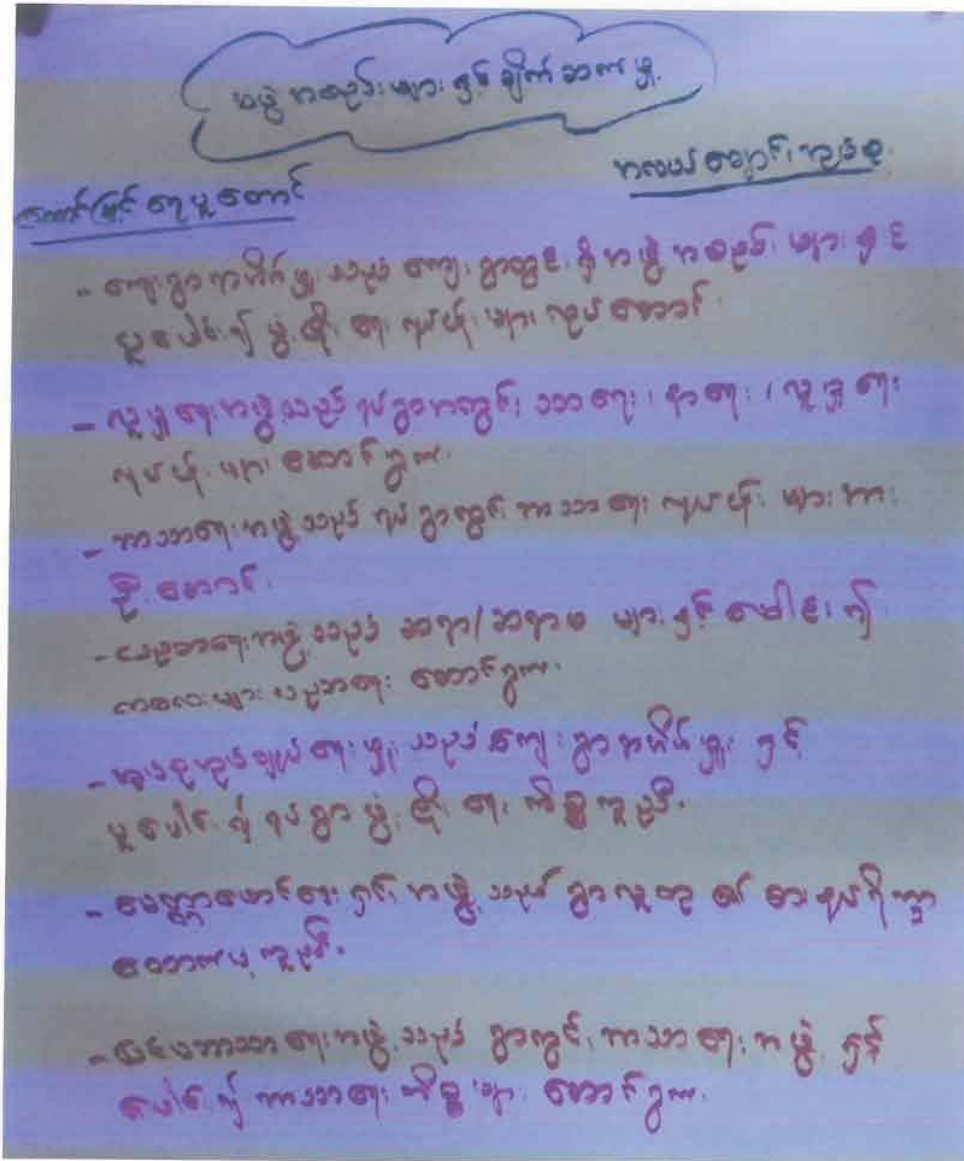 အဖွဲ့အစည်းများနှင့်ချိတ်ဆက်မှု
အလယ်ချောင်းအုပ်စု
တောင်မြင့်ရေပူတောင်
- ကျေးရွာအာဏာပိုင်မှူးသည် ကျေးရွာတွင်းရှိအဖွဲ့အစည်းများနှင့်
ပူးပေါင်း၍ ဖွံ့ဖြိုးရေးလုပ်ငန်းများလုပ်ဆောင်
- လူမှုရေးအဖွဲ့သည် ရပ်ရွာအတွင်း သာရေး၊ နာရေး၊ လူမှုရေး
လုပ်ငန်းများဆောင်ရွက်
- ဘာသာရေးအဖွဲ့သည် ရပ်ရွာတွင်းဘာသာရေးလုပ်ငန်းများအား
ဦးဆောင်
- ပညာရေးအဖွဲ့သည် ဆရာ/ဆရာမများနှင့်ပေါင်း၍
ကလေးများပညာရေး ဆောင်ရွက်
- အုပ်ချုပ်ရေးမှူးသည် ကျေးရွာ နှင့်
ပူးပေါင်း၍ ရပ်ရွာဖွံ့ဖြိုးရေးကိစ္စကူညီ
- မေတ္တာ ရှင်အဖွဲ့သည် ရွာလူထု၏ စားနပ်ရိက္ခာ
ထောက်ပံ့ကူညီ
- အဖွဲ့သည် ရွာတွင်းဘာသာရေးအဖွဲ့နှင့်
ပေါင်း၍ ဘာသာရေးကိစ္စများဆောင်ရွက်